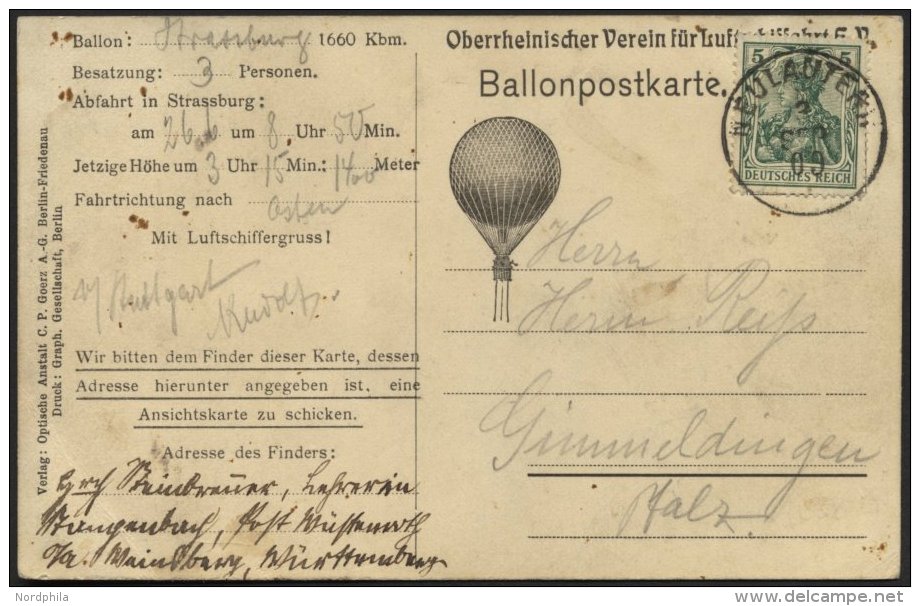 Ballon: Strassburg 1660 Kbm.
Besatzung: 3 Personen.
Abfahrt in Strassburg:
am 26 um 8 Uhr 50 Min.
Jetzige Höhe um 3 Uhr 15 Min.: 1400 Meter
Fahrtrichtung nach Osten
Mit Luftschiffergruss!
Stuttgart
Wir bitten dem Finder dieser Karte, dessen
Adresse hierunter angegeben ist, eine
Ansichtskarte zu schicken.
Adresse des Finders:
Steinbrenner, Lehrerin
Stangenbach, Post Wüstenroth
Weinsberg, Württemberg
Verlag: Optische Anstalt C. P. Goerz A.-G. Berlin-Friedenau
Druck: Graph. Gesellschaft, Berlin
Oberrheinischer Verein für Luftschiffahrt E.V.
Ballonpostkarte.
5 5
DEUTSCHES REICH
NEULAUTERN
3
SEP
09
Herrn
Herm. Reiss
Gimmeldingen
Pfalz
Nordphila
delcampe.net